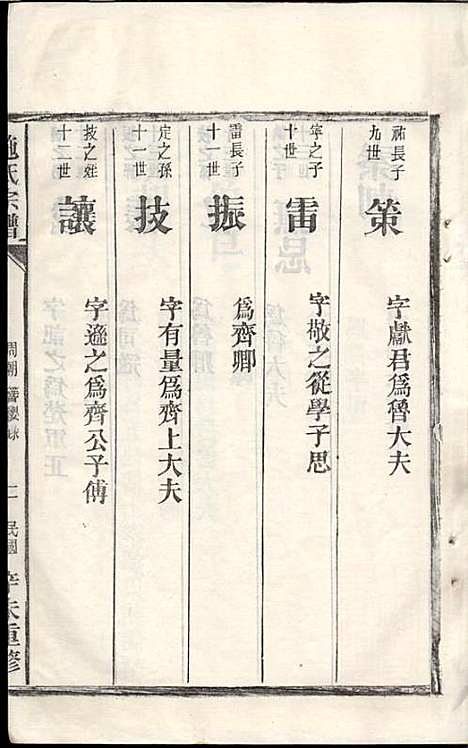 祐長子
九世
策
字獻君爲魯大夫
寧之子
十世
雷
字敬之從學子思
雷長子
十一世
振
爲齊卿
定之孫
十一世
技
字有量爲齊上大夫
技之姪
十二世
讓
字遜之爲齊公子傅
施氏宗譜
周朝
二
民國
辛未重修